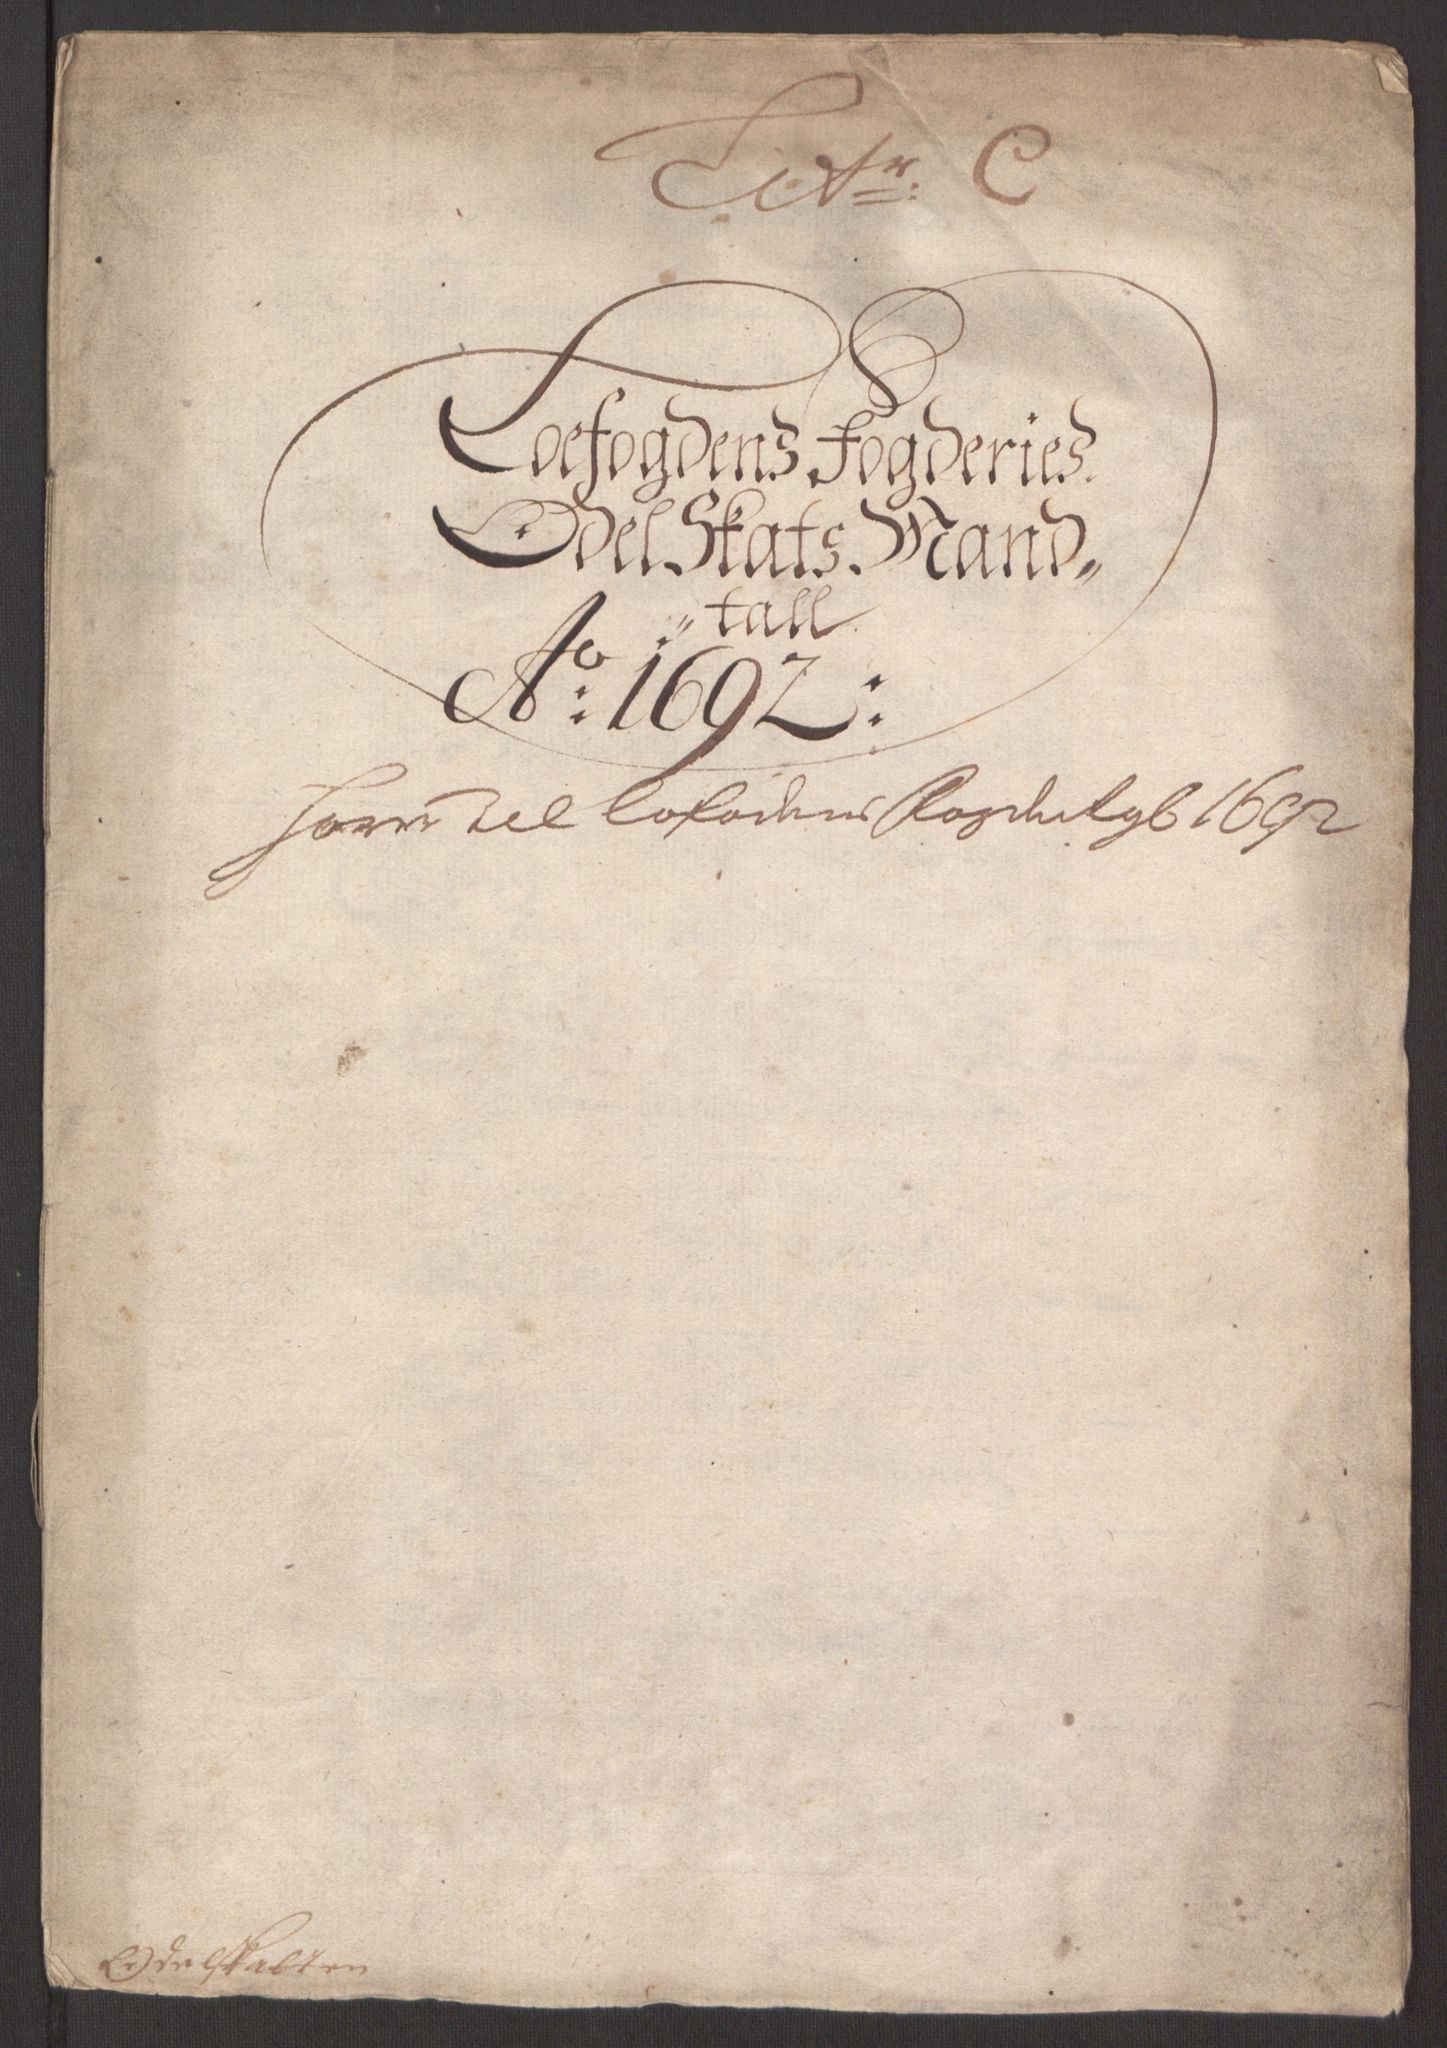 Litr: C
Loefogdens Fogderies.
Odel Skats Mand„
„tall
Ao: 1692:
Hører til Lofodens Regnskb 1692
Odelskatten